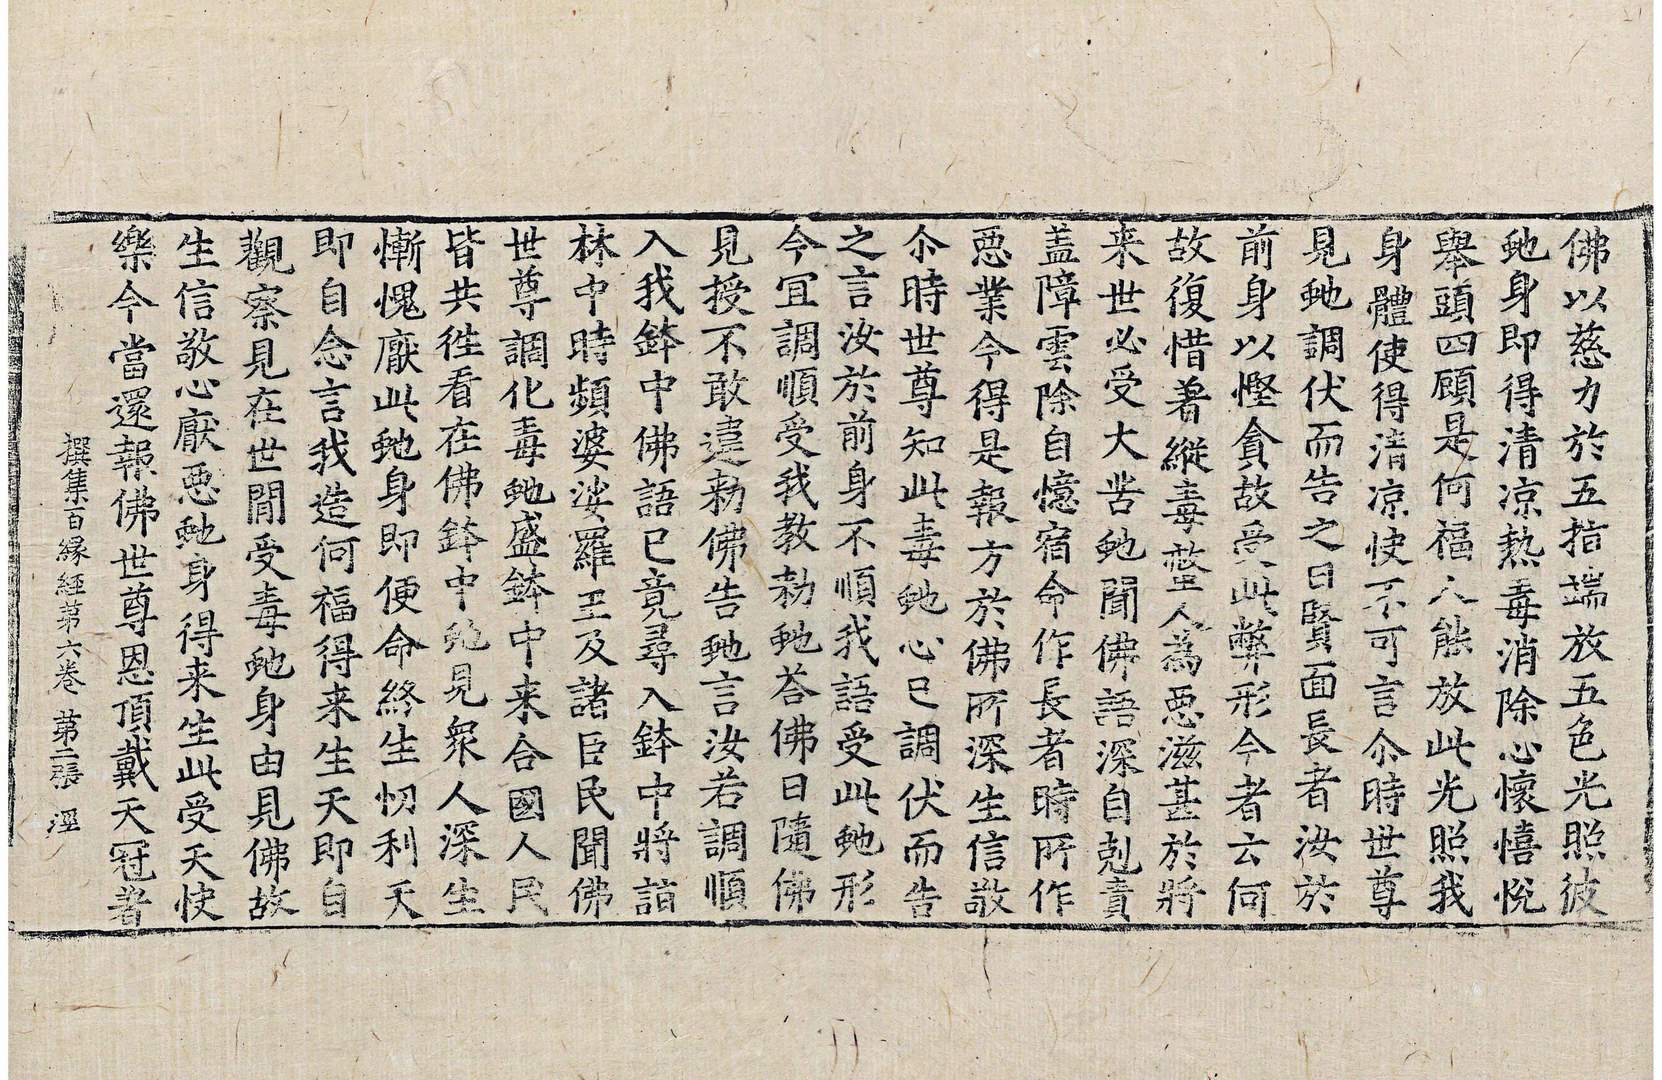 佛以慈力於五指端放五色光照彼
虵身即得清凉熱毒消除心懷憘悅
舉頭四顧是何福人能放此光照我
身體使得清凉快不可言尒時世尊
見虵調伏而告之曰賢面長者汝於
前身以慳貪故受此弊形今者云何
故復惜著縱毒螫人為惡滋甚於將
来世必受大苦虵聞佛語深自剋責
盖障雲除自憶宿命作長者時所作
惡業今得是報方於佛所深生信敬
尒時世尊知此毒虵心已調伏而告
之言汝於前身不順我語受此虵形
今冝調順受我教勑虵荅佛曰隨佛
見授不敢違勑佛告虵言汝若調順
入我鉢中佛語已竟尋入鉢中將詣
林中時頻婆娑羅王及諸臣民聞佛
世尊調化毒虵盛鉢中来合國人民
皆共徃看在佛鉢中虵見衆人深生
慚愧厭此虵身即便命終生忉利天
即自念言我造何福得来生天即自
觀察見在世閒受毒虵身由見佛故
生信敬心厭惡虵身得来生此受天快
樂今當還報佛世尊恩頂戴天冠著
撰集百緣經第六卷 第二張 溫